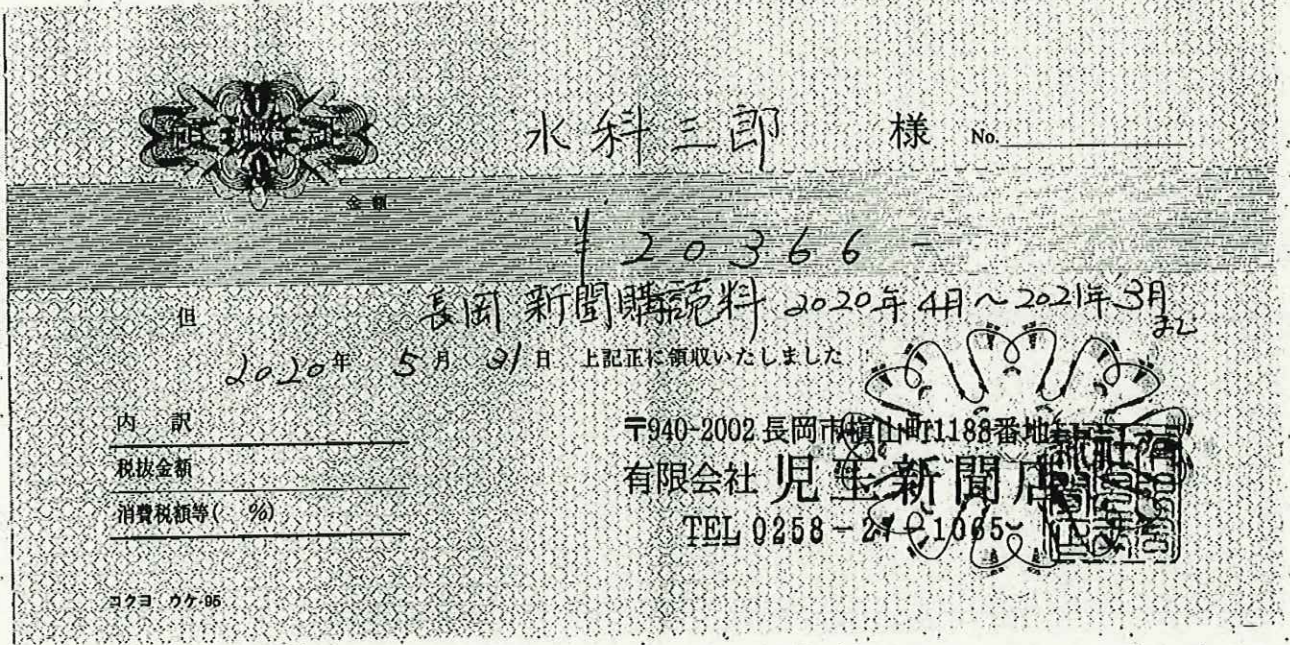 領収証
水科三郎 様 No.
金額
¥20366-
但 長岡新聞購読料 2020年4月~2021年3月まで
2020年 5月 31日 上記正に領収いたしました
内訳
税抜金額
消費税額等( %)
〒940-2002 長岡市槇山町1188番地
有限会社 児玉新聞店
TEL 0258-27-1065
コクヨ ウケ-95